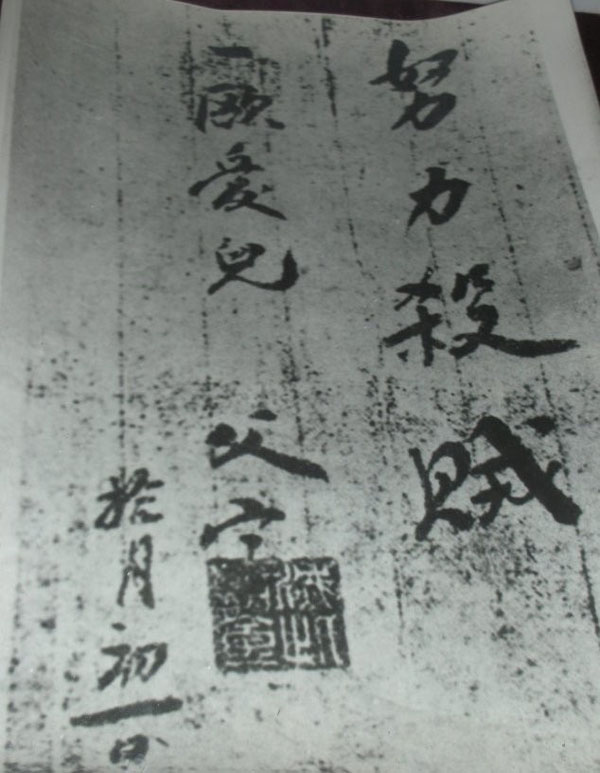 努力殺賊
一歐愛兒 父字
拾月初一日